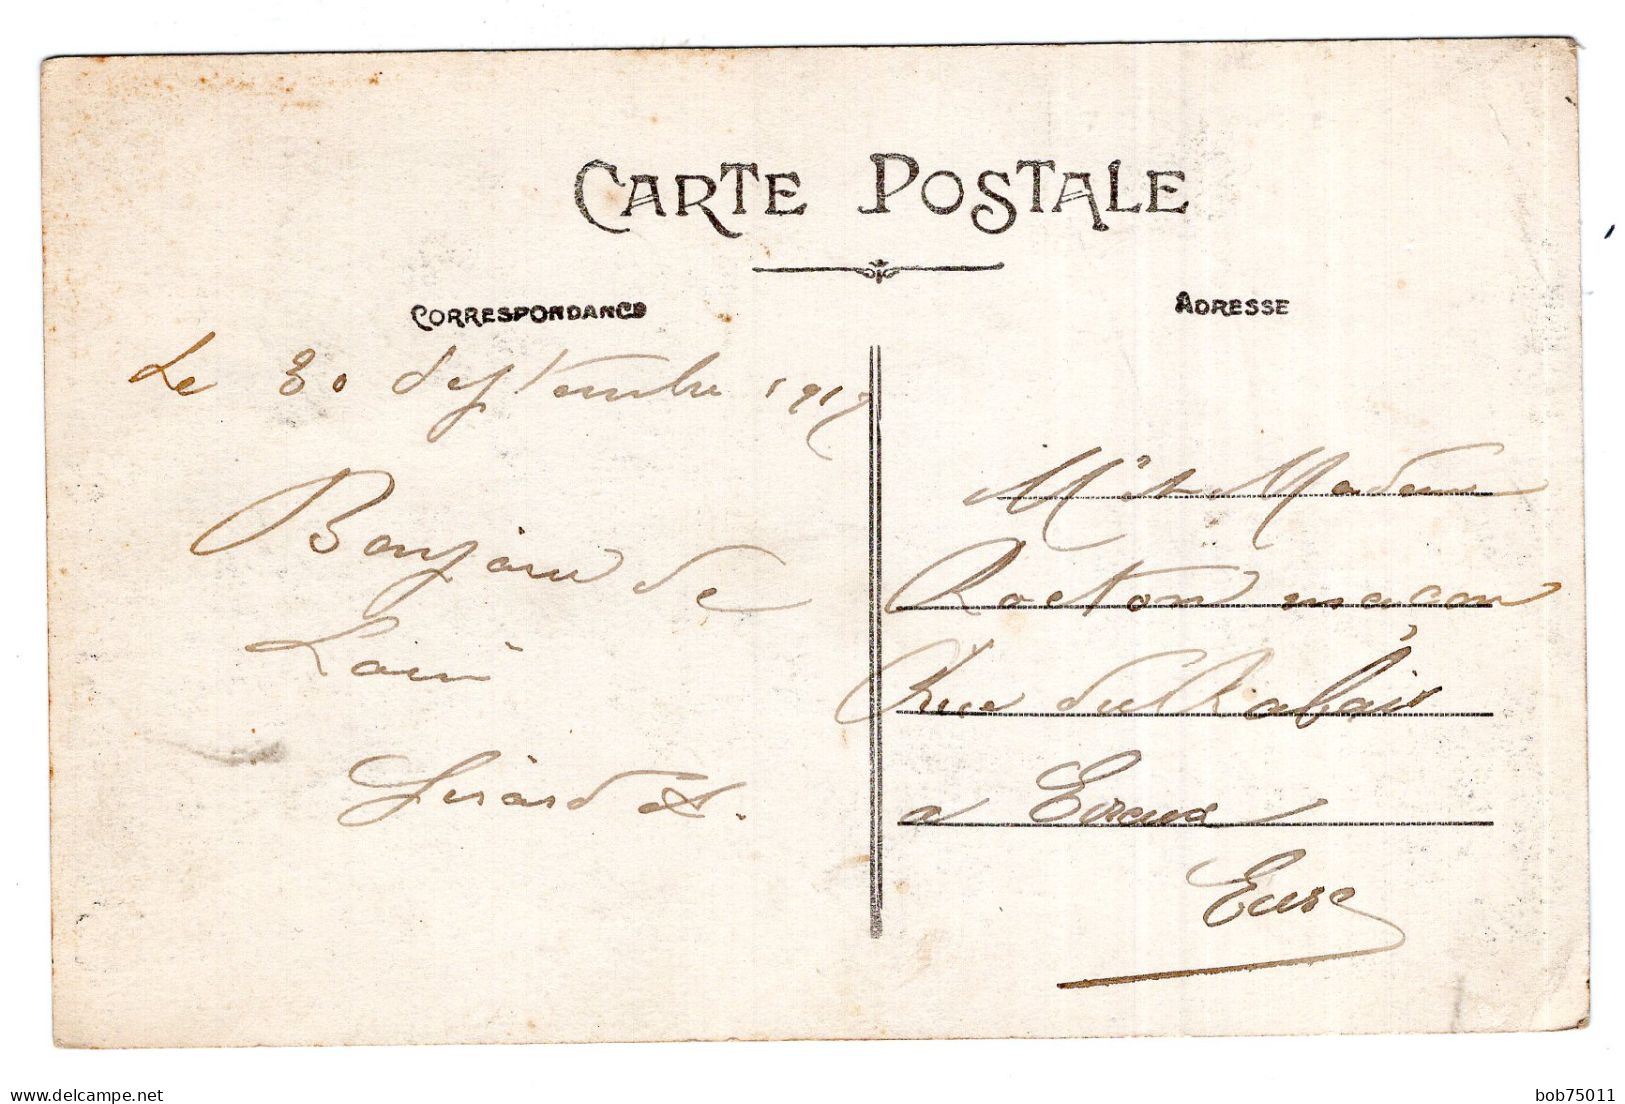 CARTE POSTALE
CORRESPONDANCE
ADRESSE
Le 30 Septembre 1917
Bonjour de
Loin
Gérard
Mr et Madame
Rocton maçon
Rue du Rabais
a Evreux
Eure
bob75011